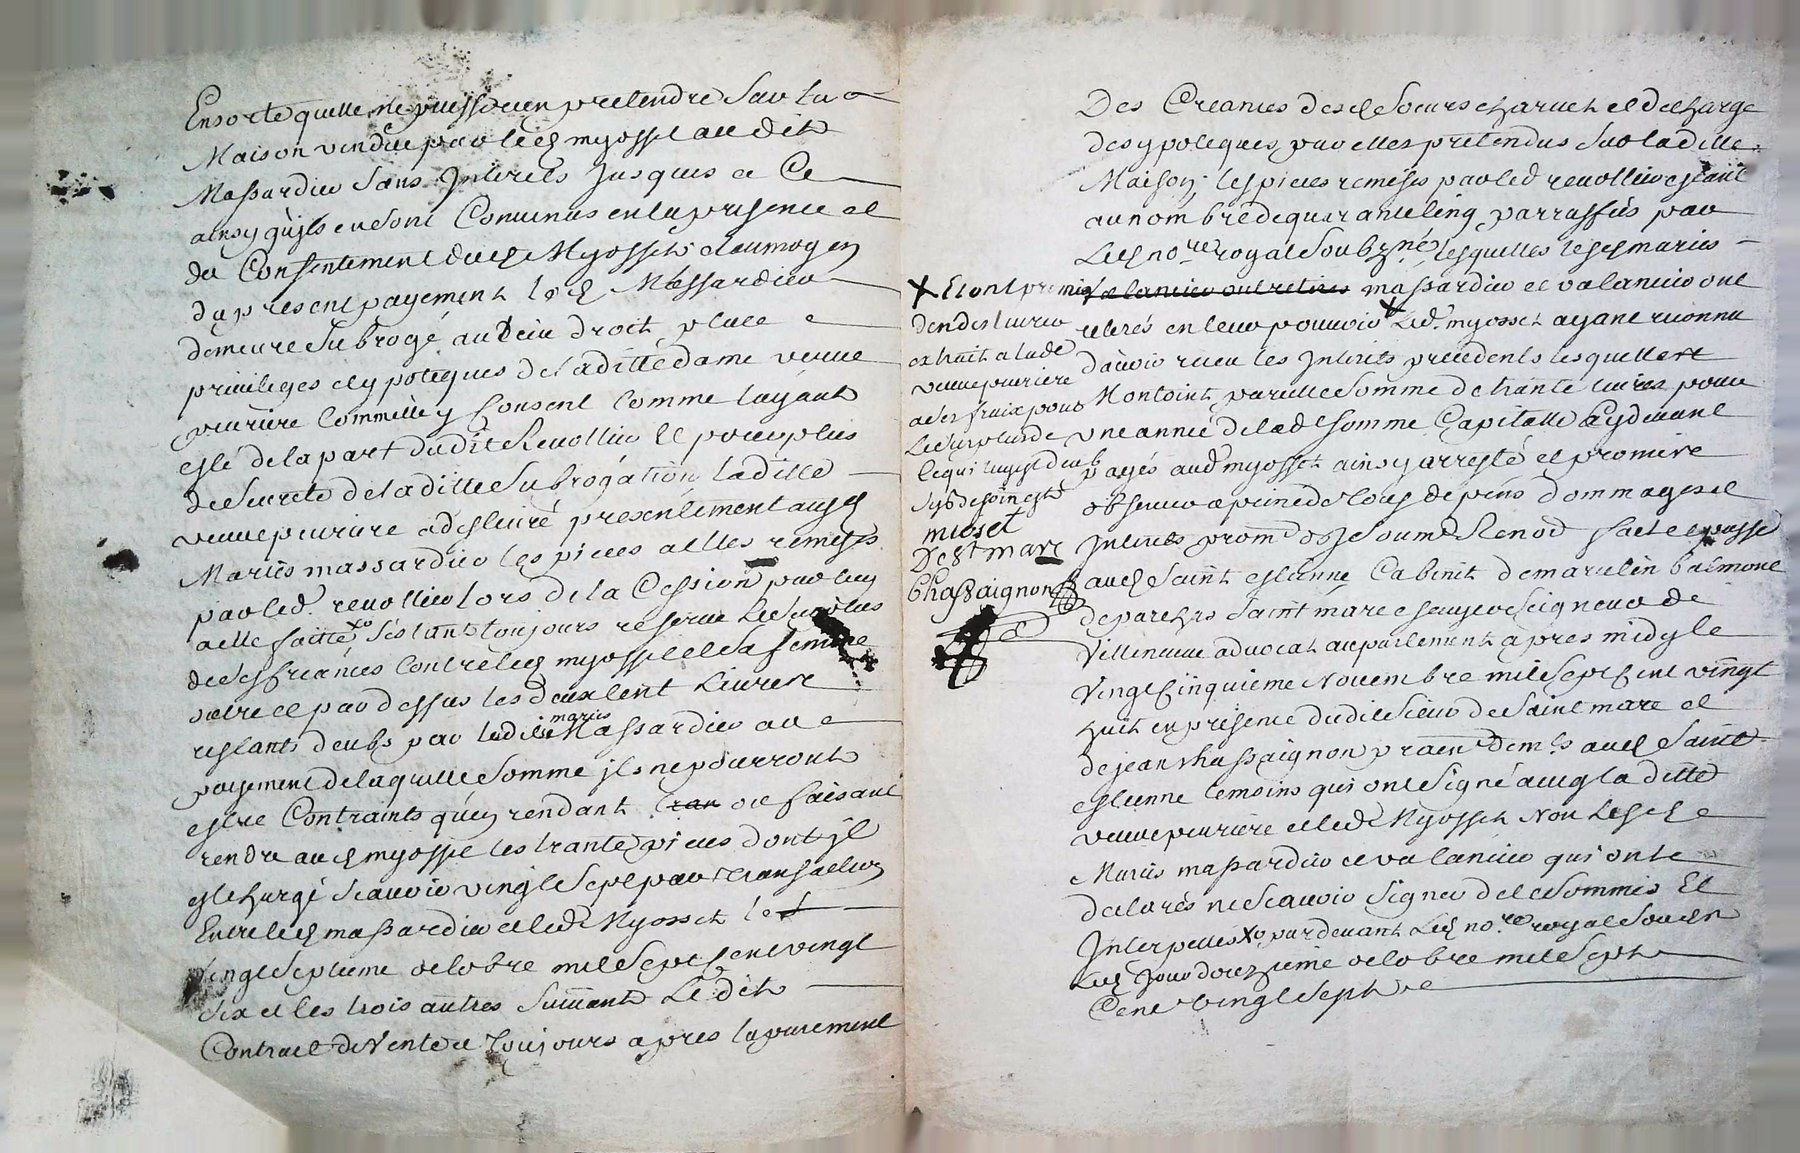 Ensorte quelle ne puisse rien pretendre sur la
Maison vendue par led myosset audit
Massardier sans Interets Jusques a Ce
ainsy quils en sont Convenus en la presence et
du Consentement dud Myosset et au moyen
du present payement led Massardier
demeure Subrogé au lieu droit place
privileges et ypoteques de laditte dame veuve
peuriere Comme elle y Consent Comme layant
esté de la part dudit Revollier Et pour plus
de Seureté de laditte Subrogation laditte
veuve peuriere a deslivré presentement ausd
Mariés massardier les pieces a elles remises
par led. revollier lors de la Cession par luy
a elle faitte x sestant toujours reservé Le surplus
de ses Creances Contre led myosset et sa femme
outre et par dessus les deux Cent Livres
restants deubs par lesdits mariés Massardier au
payement de laquelle somme ils ne pourront
estre Contraints qu'en rendant ou faisant
rendre aud myosset les trante pieces dont il
est chargé scavoir vingt sept par transaction
Entre led massardier et led Myosset le
vingt septieme octobre mil sept Cent vingt
six et les trois autres suivant Ledit
Contract de Vente et toujours apres lapurement
Des Creances desd Soeurs charuet et decharge
des ypoteques par elles pretendus sur laditte
Maison, les pieces remises par led revollier estant
au nombre de quarante Cinq parraffés par
Led no.re royal Soubzné lesquelles lesd mariés
massardier et valancier ont
retirés en leur pouvoir x Led. myosset ayant reconnu
davoir receu les Interets precedents lesquelles
Montoint pareille somme de trante livres pour
une année de lad somme Capitalle Cy devant
payés aud myosset ainsy arresté et promire
observer a peine de tous depens dommages et
Interets prom oblig Soum Renon fait et passé
aud Saint estienne Cabinet de marcelin bremone
de parchas Saint marc escuyer Seigneur de
Villeneuve advocat au parlement apres midy le
vingt Cinquieme Novembre mil Sept Cent vingt
huit en presence dudit Sieur de Saint marc et
de jean chassaignon praen dem.ts aud Saint
estienne temoins qui ont Signé avec la ditte
veuve peuriere et led Myosset Non Lesd
Mariés massardier et valancier qui ont
declarés ne Scavoir Signer de ce Sommés Et
Interpellés x par devant Led no.re royal Soussn
Led Jour douzieme octobre mil Sept
Cent vingt Sept
x Et ont promis
den deslivrer
extrait a lade
veuve peuriere
a ses fraix pour
Le Surplus de
Ce qui luy est deub
Sy besoin est
mioset
De St marc
Chassaignon